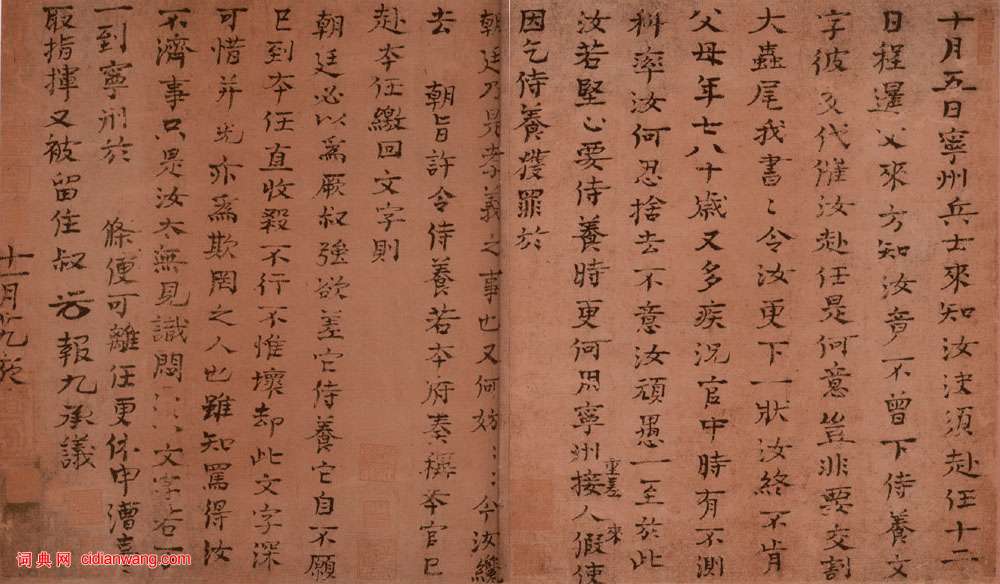 十月五日寧州兵士來知汝決須赴任十二
日程遝父來方知汝竟不曾下侍養文
字彼交代催汝赴任是何意豈非要交割
大蟲尾我書〻令汝更下一狀汝終不肯
父母年七八十歲又多疾況官中時有不測
科率汝何忍捨去不意汝頑愚一至於此
汝若堅心要侍養時更何用寧州接人假使
重差
來
因乞侍養獲罪於
朝廷乃是孝義之事也又何妨〻〻今汝纔
去 朝旨許令侍養若本府奏稱本官已
赴本任繳回文字則
朝廷必以爲厥叔強欲差它侍養它自不願
已到本任直收殺不行不惟壞却此文字深
可惜并光亦爲欺罔之人也雖知罵得汝
不濟事只是汝太無見識悶〻〻文字若
一到寧州於 條便可離任更休申漕
取指揮又被留住叔 光 報九承議
十一月
词典网 cidianwang.com